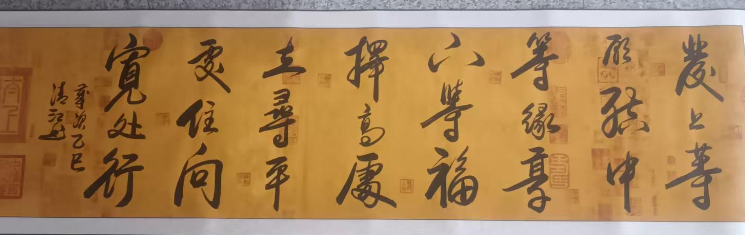 發上等
願結中
等緣享
下等福
擇高處
立尋平
處住向
寬处行
歲次乙巳